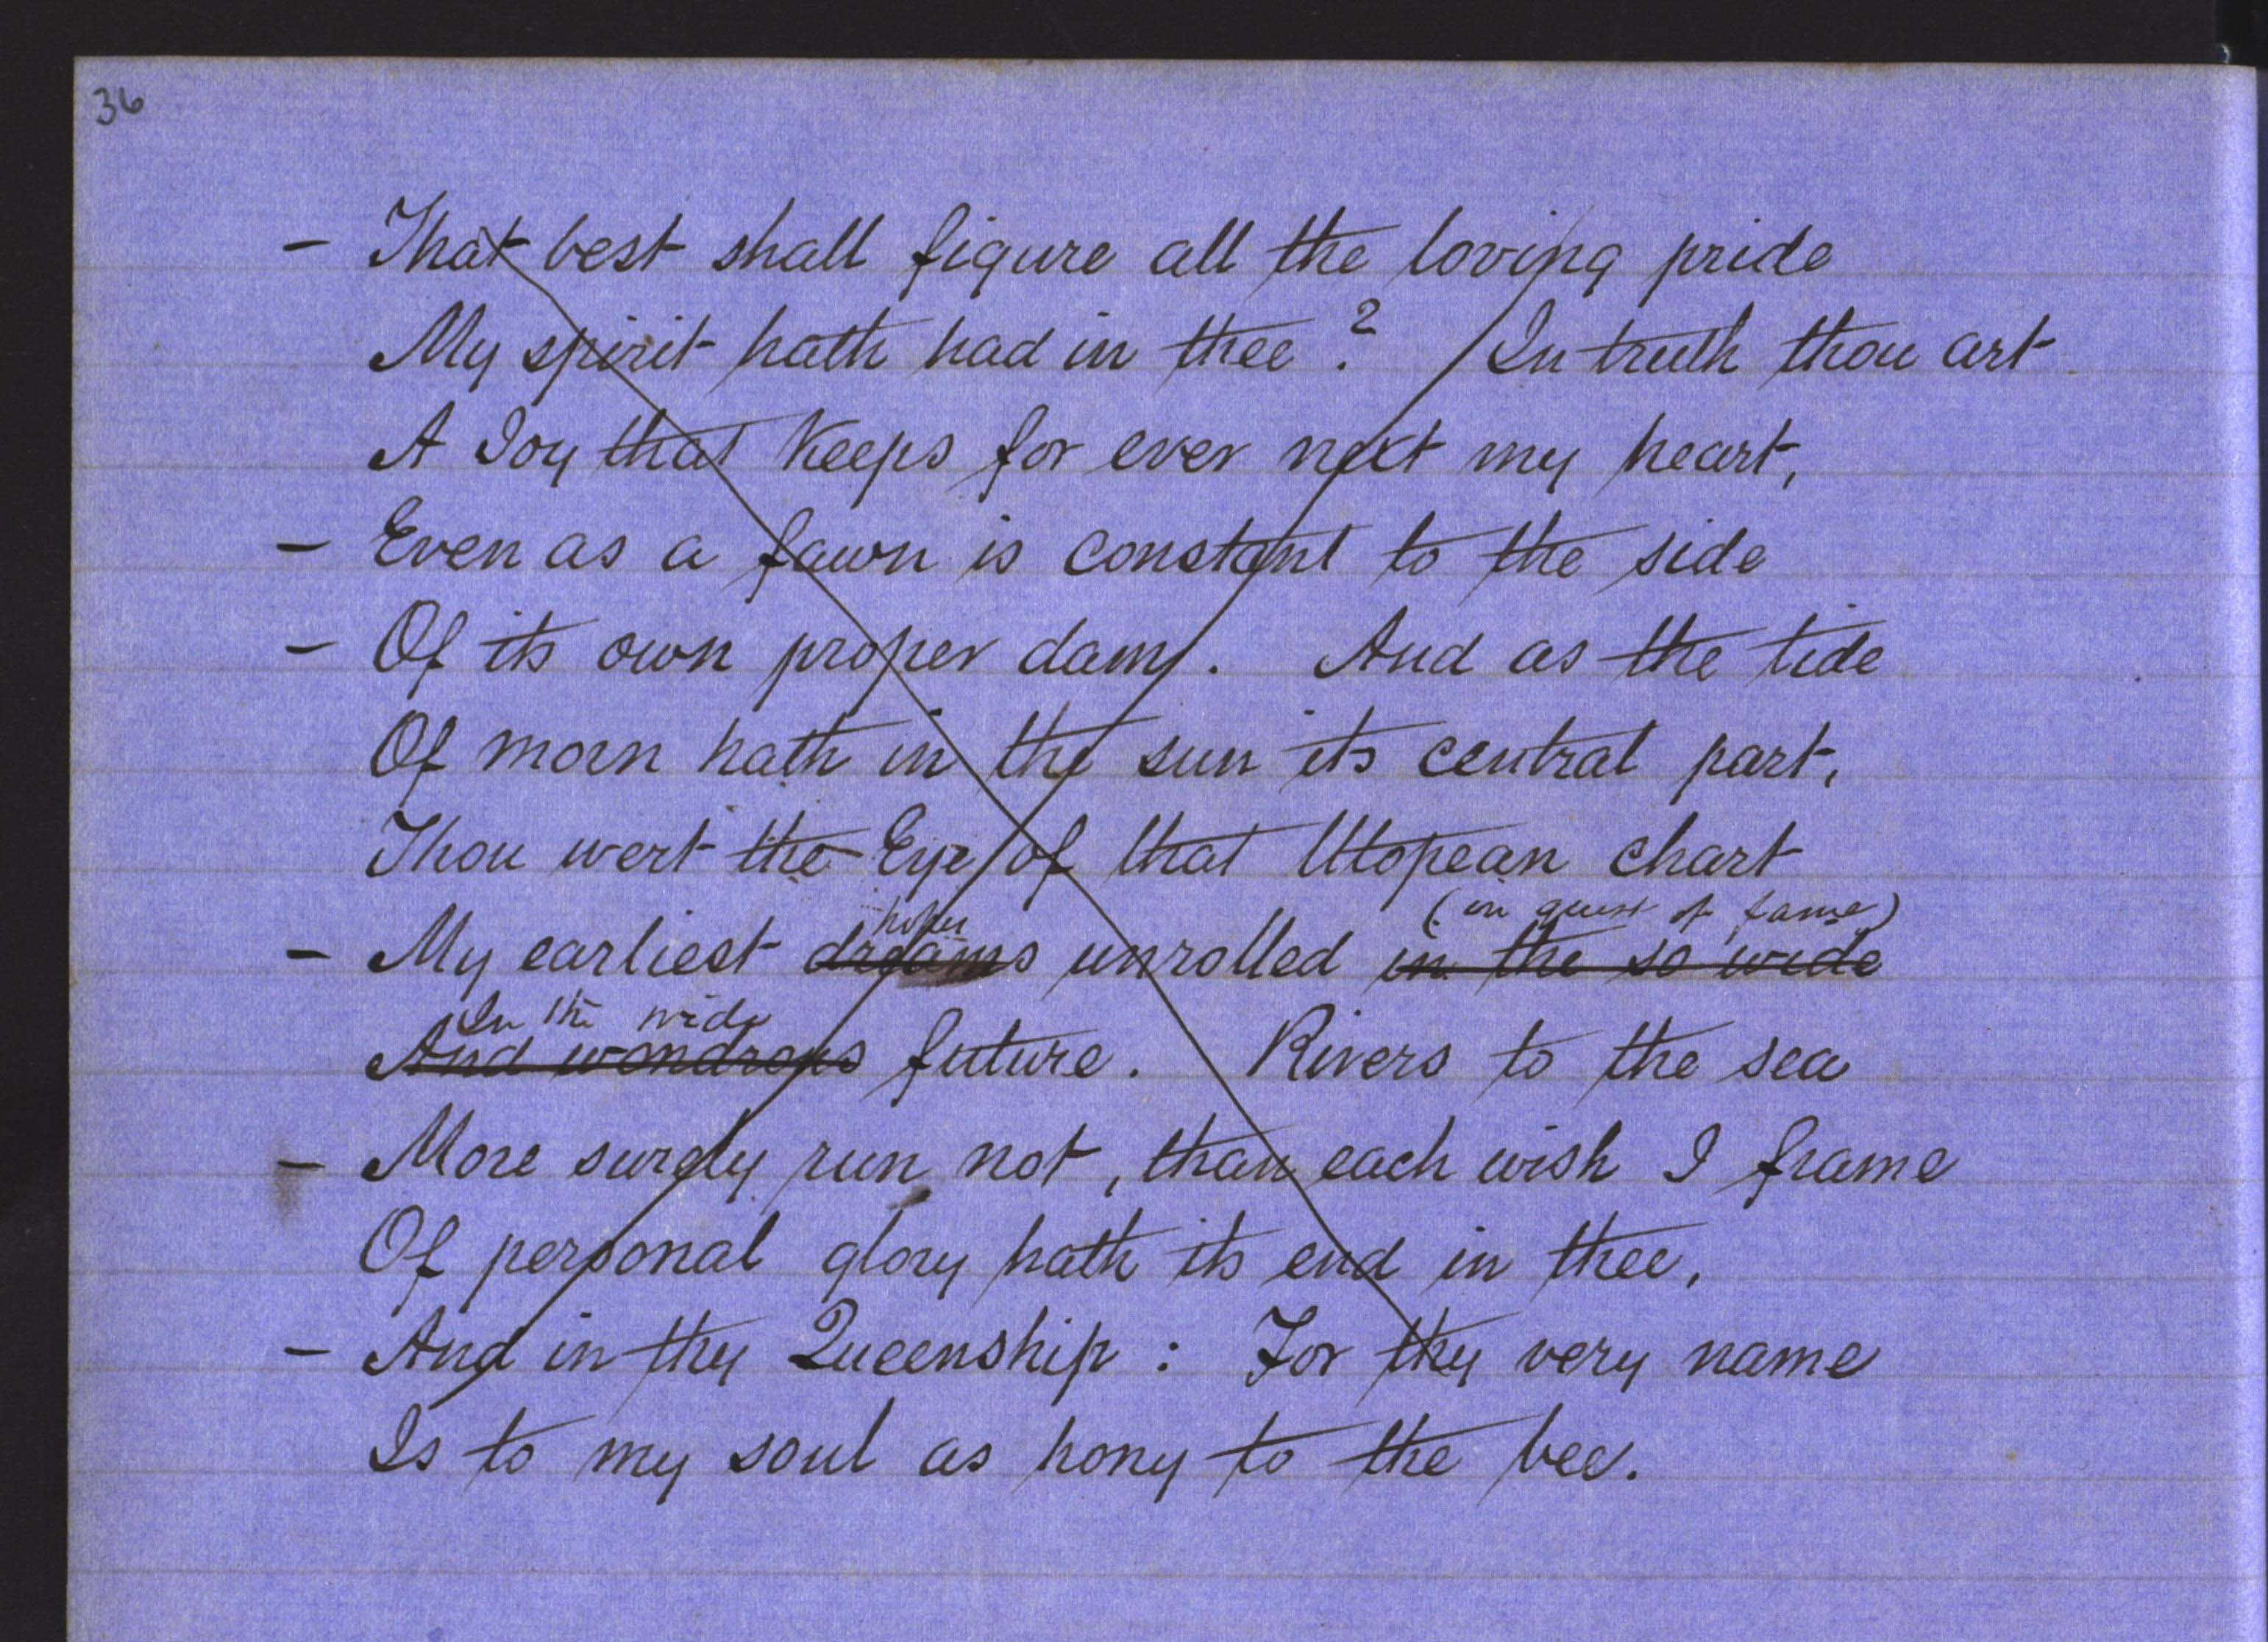 36
- That best shall figure all the loving pride
My spirit hath had in thee? In truth thou art
A Joy that Keeps for ever next my heart,
- Even as a fawn is constant to the side
- Of its own proper dam. And as the tide
Of morn hath in the sun its central part,
Thou wert the Eye of that Utopean chart
hopes (in quest of fame)
- My earliest dreams unrolled in the so wide
In the wide
And wondrous future. Rivers to the sea
- More surely run not, than each wish I frame
Of personal glory hath its end in thee,
- And in thy Queenship: For thy very name
Is to my soul as hony to the bee.